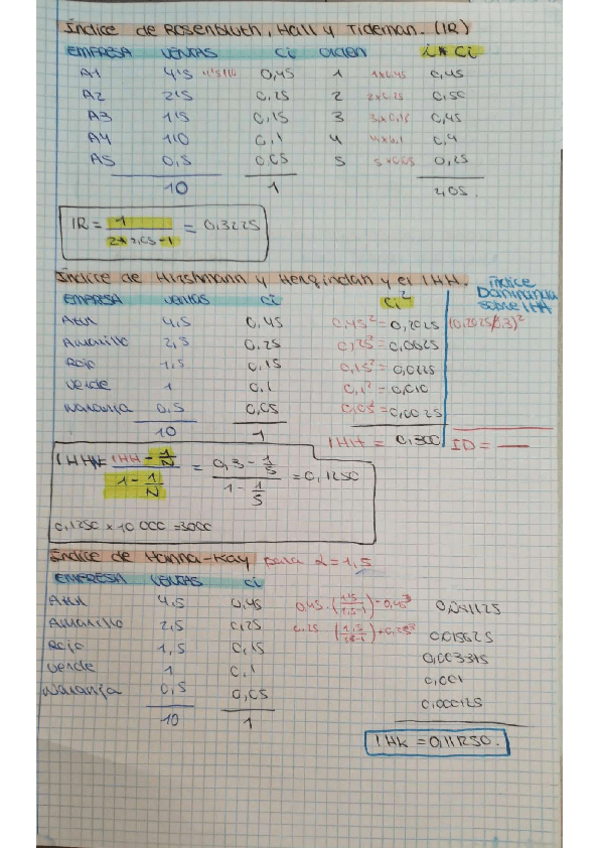 Índice de Rosenbluth, Hall y Tideman. (IR)
EMPRESA VENTAS ci orden i * ci
A1 4'5 0,45 1 1x0,45 0,45
A2 2'5 0,25 2 2x0,25 0,50
A3 1'5 0,15 3 3x0,15 0,45
A4 1'0 0,1 4 4x0,1 0,4
A5 0,5 0,05 5 5x0,05 0,25
10 1 2,05.
IR = 1 / 2*2,05-1 = 0,3225
Índice de Hirshmann y Herfindahl y el IHH.
Índice Dominancia sobre IHH
EMPRESA ventas ci ci²
Azul 4,5 0,45 0,45² = 0,2025 (0,2025/0,3)²
Amarillo 2,5 0,25 0,25² = 0,0625
Rojo 1,5 0,15 0,15² = 0,0225
Verde 1 0,1 0,1² = 0,010
Naranja 0,5 0,05 0,05² = 0,0025
10 1 IHH = 0,300 ID =
IHHN = IHH - 1/N / 1 - 1/N = 0,3 - 1/5 / 1 - 1/5 = 0,1250
0,1250 x 10 000 = 3000
Índice de Hanna-Kay para α = 1,5
EMPRESA VENTAS ci
Azul 4,5 0,45 0,45
Amarillo 2,5 0,25 0,25 0,015625
Rojo 1,5 0,15 0,003375
Verde 1 0,1 0,001
Naranja 0,5 0,05 0,000125
10 1
IHK = 0,111250.